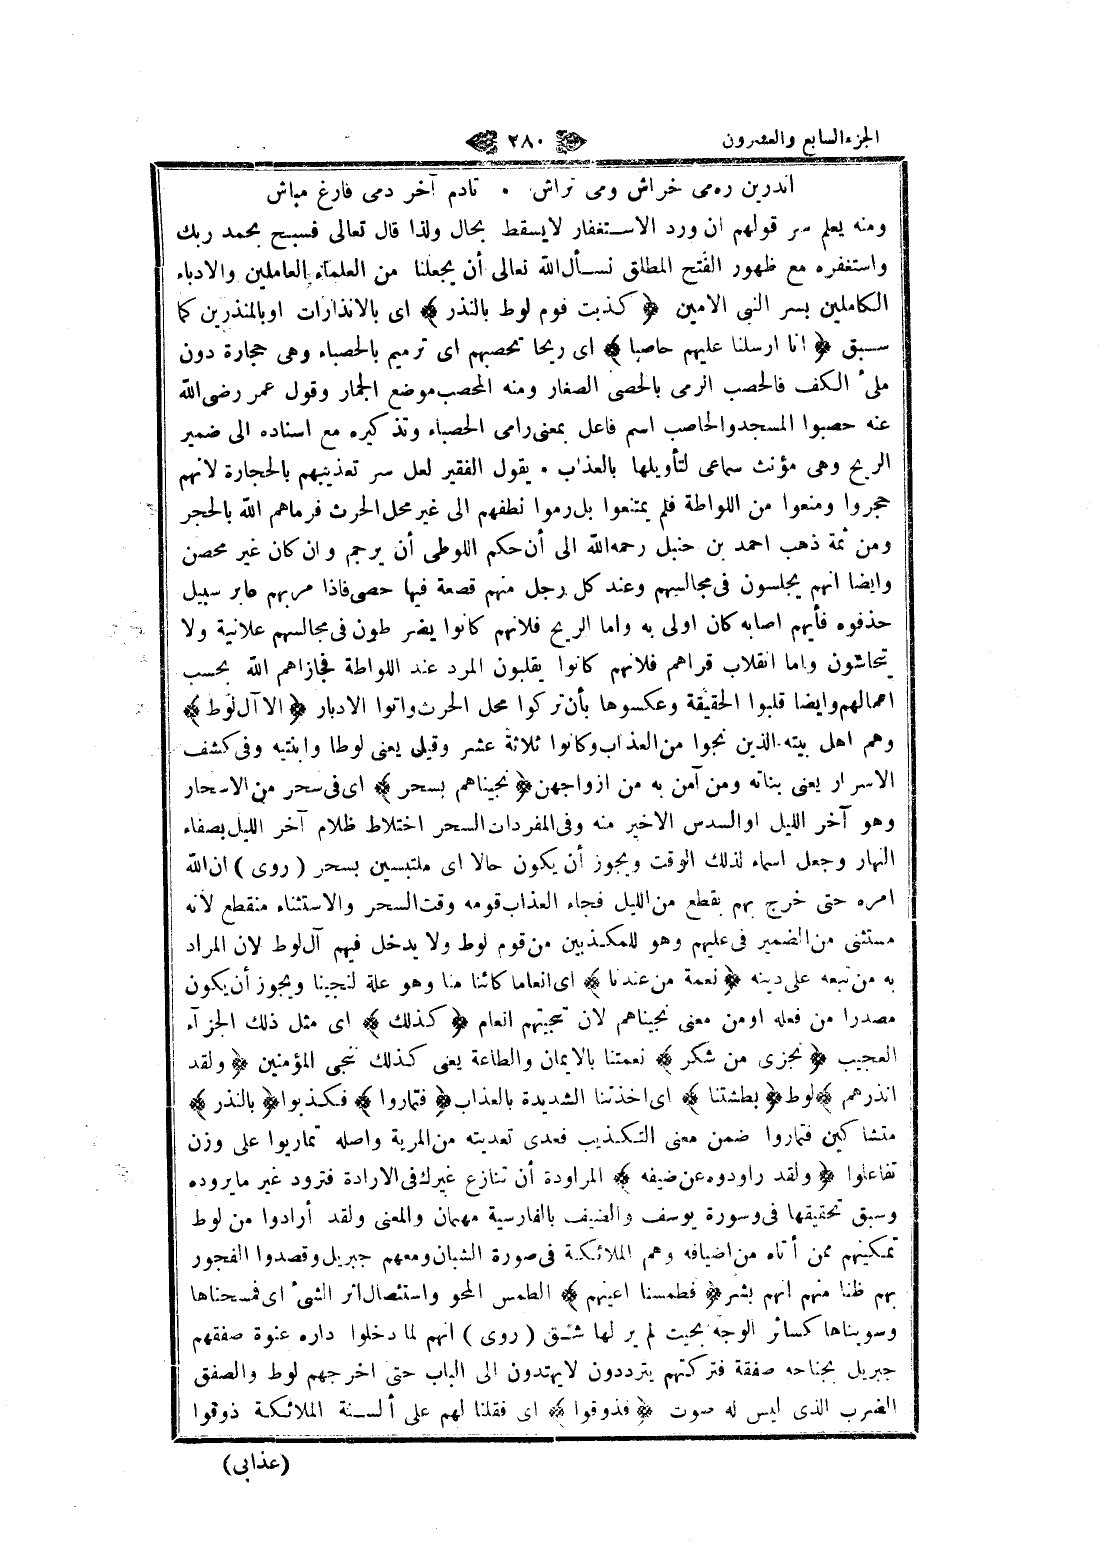 الجزء السابع والعشرون
٢٨٠
اندرين ره می خراش و می تراش • تادم آخر دمی فارغ مباش
ومنه يعلم سر قولهم ان ورد الاستغفار لايسقط بحال ولذا قال تعالى فسبح بحمد ربك
واستغفره مع ظهور الفتح المطلق نسأل الله تعالى أن يجعلنا من العلماء العاملين والادباء
الكاملين بسر النبى الامين ﴿ كذبت قوم لوط بالنذر ﴾ اى بالانذارات اوبالمنذرين كما
سبق ﴿ انا ارسلنا عليهم حاصبا ﴾ اى ريحا تحصبهم اى ترميم بالحصباء وهى حجارة دون
ملئ الكف فالحصب الرمى بالحصى الصغار ومنه المحصب موضع الجمار وقول عمر رضى الله
عنه حصبوا المسجد والحاصب اسم فاعل بمعنى رامى الحصباء وتذكيره مع اسناده الى ضمير
الريح وهى مؤنث سماعى لتأويلها بالعذاب • يقول الفقير لعل سر تعذيبهم بالحجارة لانهم
حجروا ومنعوا من اللواطة فلم يمتنعوا بل رموا نطفهم الى غير محل الحرث فرماهم الله بالحجر
ومن ثمة ذهب احمد بن حنبل رحمه الله الى أن حكم اللوطى أن يرجم وان كان غير محصن
وايضا انهم يجلسون فى مجالسهم وعند كل رجل منهم قصعة فيها حصى فاذا مر بهم عابر سبيل
حذفوه فأيهم اصابه كان اولى به واما الريح فلانهم كانوا يضرطون فى مجالسهم علانية ولا
يتحاشون واما انقلاب قراهم فلانهم كانوا يقلبون المرد عند اللواطة فجازاهم الله بحسب
اعمالهم وايضا قلبوا الحقيقة وعكسوها بأن تركوا محل الحرث واتوا الادبار ﴿ الا آل لوط ﴾
وهم اهل بيته الذين نجوا من العذاب وكانوا ثلاثة عشر وقيل يعنى لوطا وابنتيه وفى كشف
الاسرار يعنى بناته ومن آمن به من ازواجهن ﴿ نجيناهم بسحر ﴾ اى فى سحر من الاسحار
وهو آخر الليل او السدس الاخير منه وفى المفردات السحر اختلاط ظلام آخر الليل بصفاء
النهار وجعل اسماء لذلك الوقت ويجوز أن يكون حالا اى ملتبسين بسحر ( روى ) ان الله
امره حتى خرج بهم بقطع من الليل فجاء العذاب قومه وقت السحر والاستثناء منقطع لانه
مستثنى من الضمير فى عليهم وهو للمكذبين من قوم لوط ولا يدخل فيهم آل لوط لان المراد
به من تبعه على دينه ﴿ نعمة من عندنا ﴾ اى انعاما كائنا منا وهو علة لنجينا ويجوز أن يكون
مصدرا من فعله اومن معنى نجيناهم لان تنجيتهم انعام ﴿ كذلك ﴾ اى مثل ذلك الجزآء
العجيب ﴿ نجزى من شكر ﴾ نعمتنا بالايمان والطاعة يعنى كذلك ننجى المؤمنين ﴿ ولقد
انذرهم ﴾ لوط ﴿ بطشتنا ﴾ اى اخذتنا الشديدة بالعذاب ﴿ فتماروا ﴾ فكذبوا ﴿ بالنذر ﴾
متشاكين فتماروا ضمن معنى التكذيب فعدى تعديته من المرية واصله تماريوا على وزن
تفاعلوا ﴿ ولقد راودوه عن ضيفه ﴾ المراودة أن تنازع غيرك فى الارادة فترود غير مايروده
وسبق تحقيقها فى سورة يوسف والضيف بالفارسية مهمان والمعنى ولقد أرادوا من لوط
تمكينهم ممن أتاه من اضيافه وهم الملائكة فى صورة الشبان ومعهم جبريل وقصدوا الفجور
بهم ظنا منهم انهم بشر ﴿ فطمسنا اعينهم ﴾ الطمس المحو واستئصال اثر الشئ اى فمسحناها
وسويناها كسائر الوجه بحيث لم ير لها شق ( روى ) انهم لما دخلوا داره عنوة صفقهم
جبريل بجناحه صفقة فتركتهم يترددون لايهتدون الى الباب حتى اخرجهم لوط والصفق
الضرب الذى ليس له صوت ﴿ فذوقوا ﴾ اى فقلنا لهم على ألسنة الملائكة ذوقوا
(عذابى)